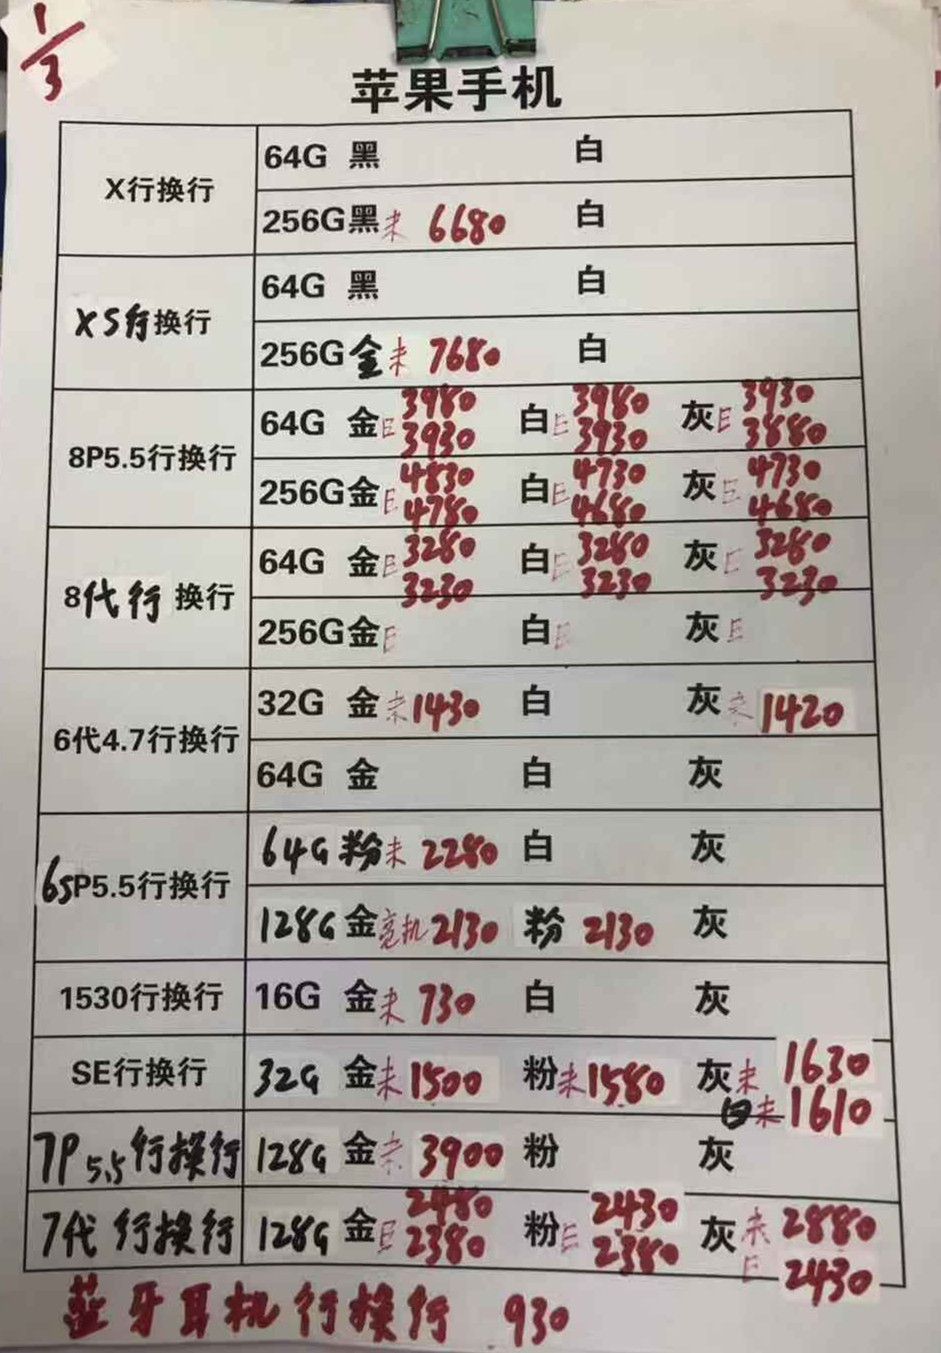 1/3
苹果手机
X行换行
64G 黑 白
256G黑未 6680 白
XS行换行
64G 黑 白
256G金未 7680 白
8P5.5行换行
64G 金E 3980 3930 白E 3980 3930 灰E 3930 3880
256G金E 4830 4780 白E 4730 4680 灰E 4730 4680
8代行换行
64G 金E 3280 3230 白E 3280 3230 灰E 3280 3230
256G金E 白E 灰E
6代4.7行换行
32G 金未1430 白 灰未1420
64G 金 白 灰
6SP5.5行换行
64G 粉未 2280 白 灰
128G 金亮机2130 粉 2130 灰
1530行换行
16G 金未 730 白 灰
SE行换行
32G 金未1500 粉未1580 灰未 1630
白未1610
7P5.5行换行
128G 金未 3900 粉 灰
7代行换行
128G 金E 2480 2380 粉E 2430 2380 灰未 2880
E 2430
蓝牙耳机行换行 930